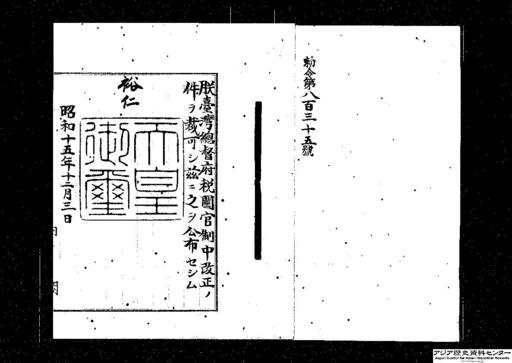 勅令第八百三十五號
朕臺灣總督府税關官制中改正ノ
件ヲ裁可シ茲ニ之ヲ公布セシム
裕仁
天皇
御璽
昭和十五年十二月三日
アジア歴史資料センター
Japan Center for Asian Historical Records